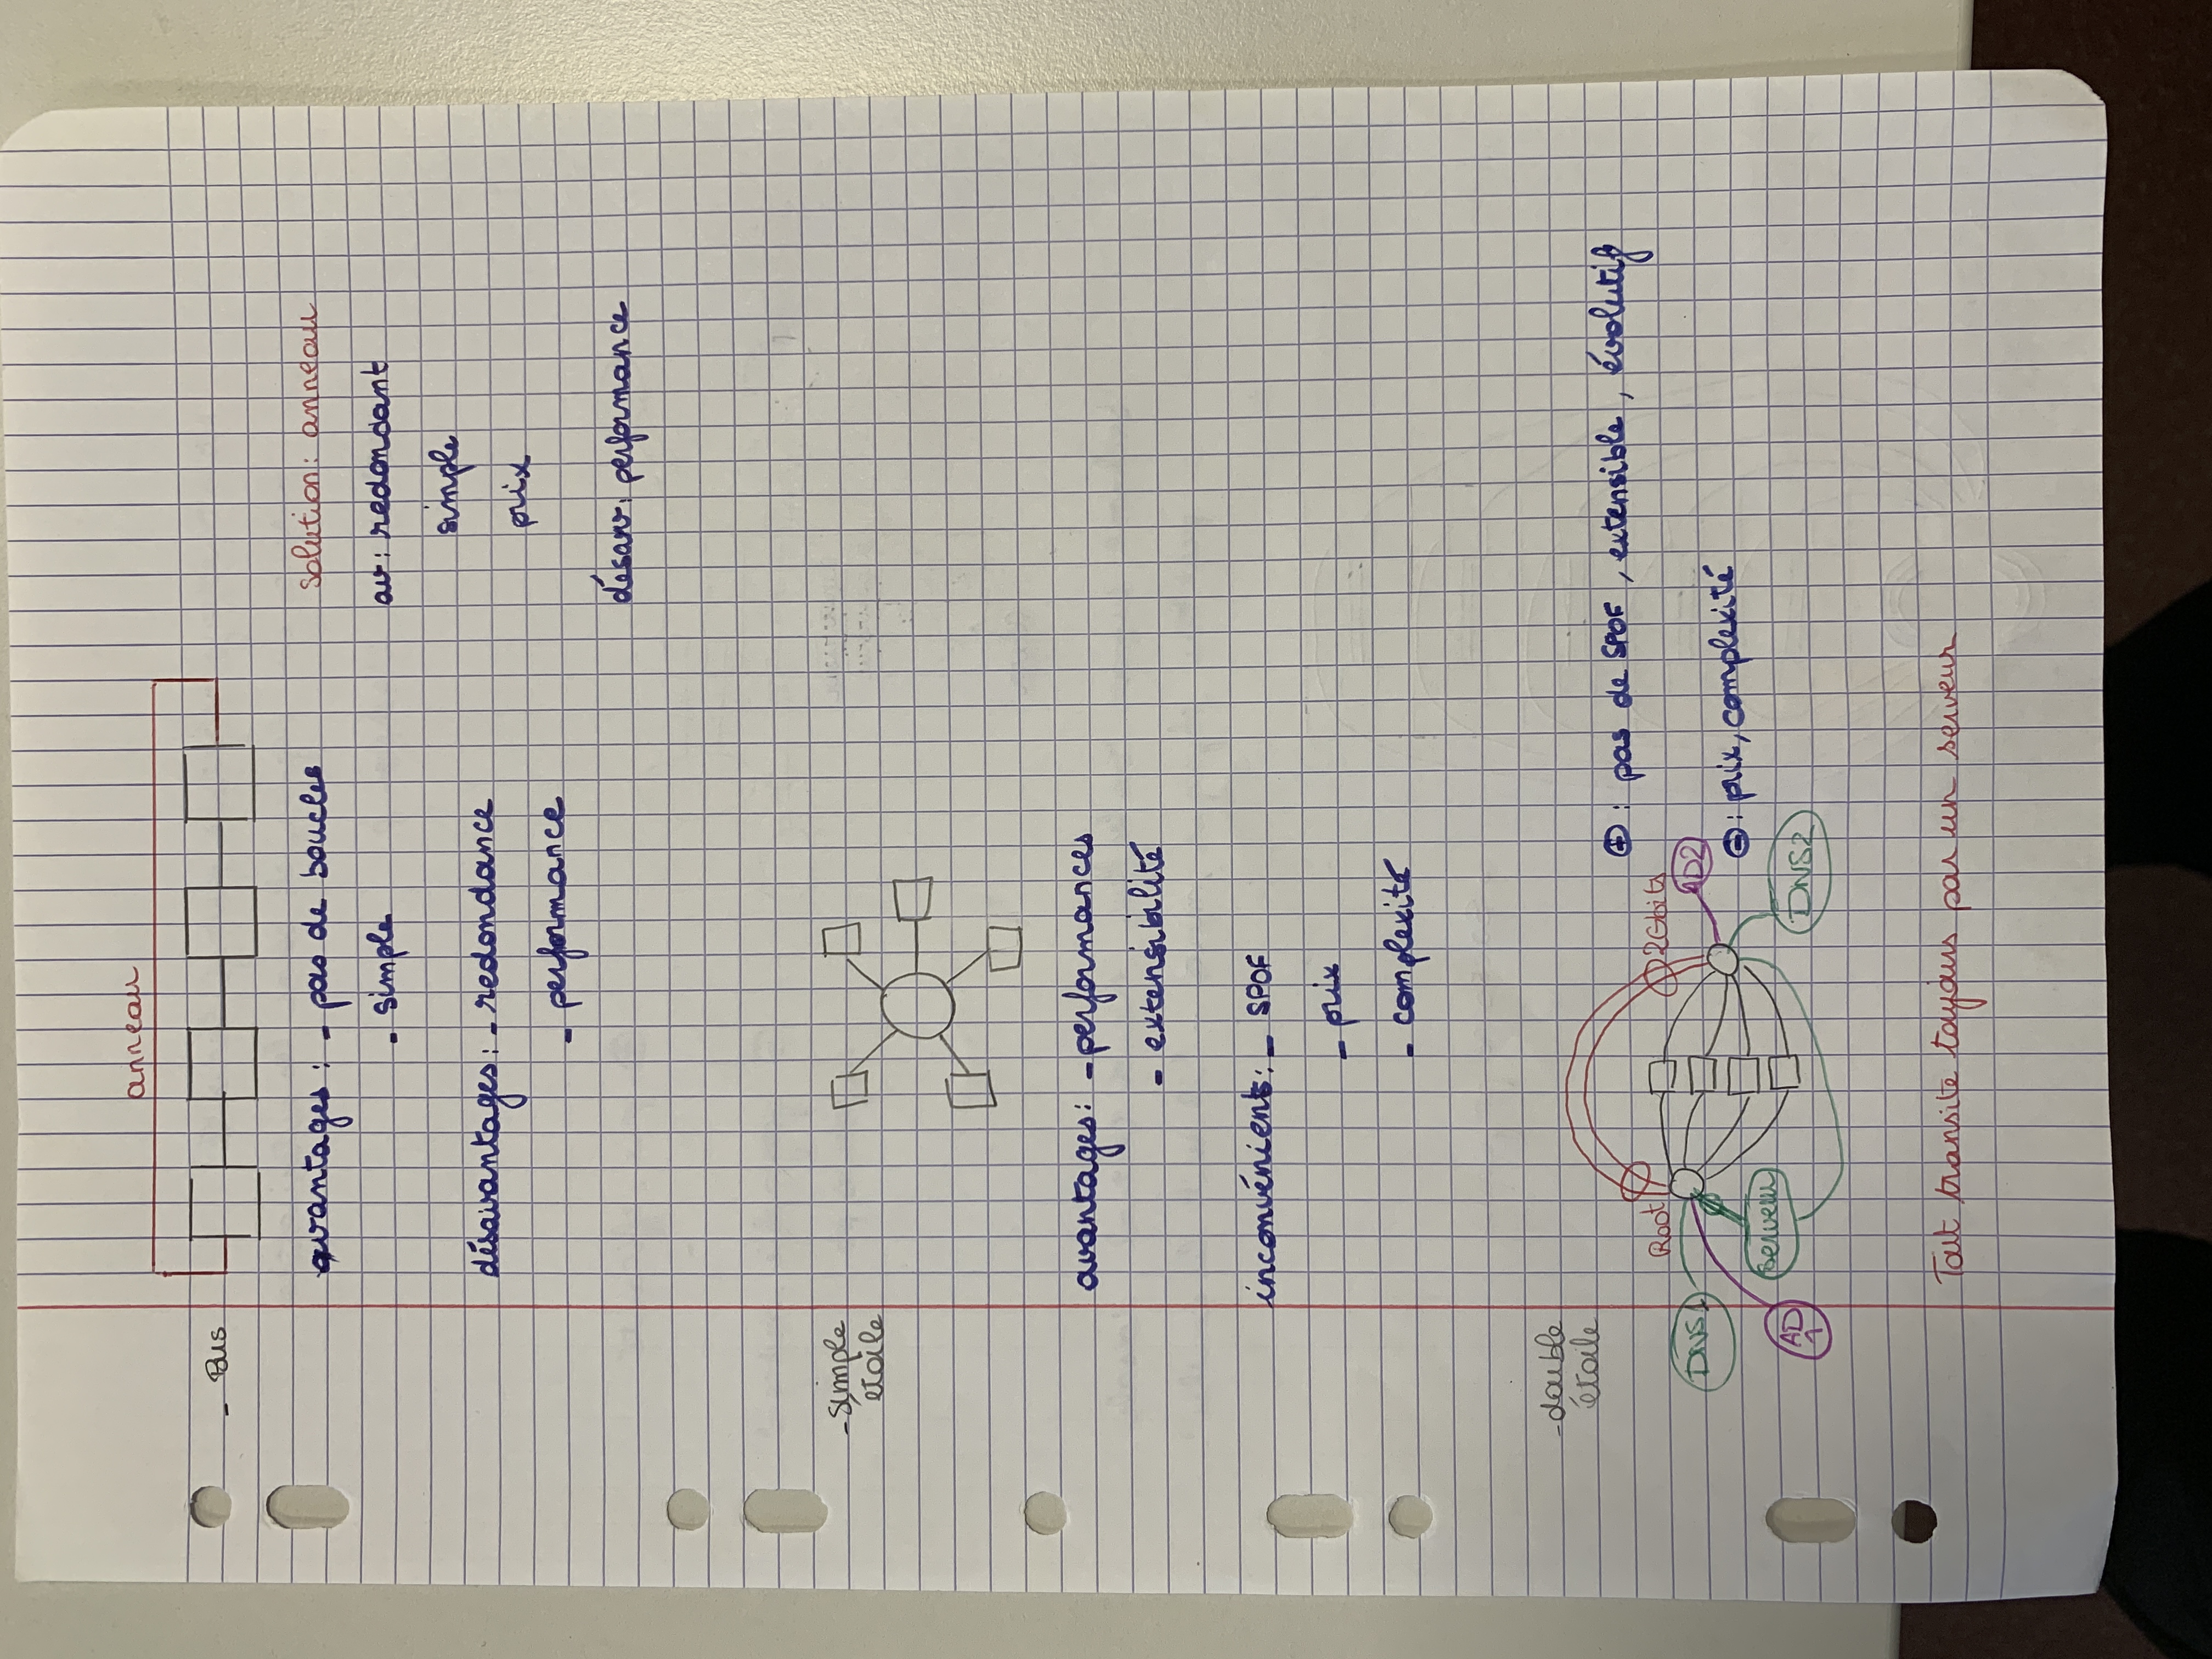 anneau
- Bus
avantages : - pas de boucles
- simple
désavantages : - redondance
- performance
solution : anneau
av : redondant
simple
prix
désav : performance
- simple
étoile
avantages : - performances
- extensibilité
inconvénients : - SPOF
- prix
- complexité
- double
étoile
Root
2Gbits
DNS1
AD
1
Serveur
AD2
DNS2
⊕ : pas de SPOF, extensible, évolutif
⊖ : prix, complexité
Tout transite toujours par un serveur